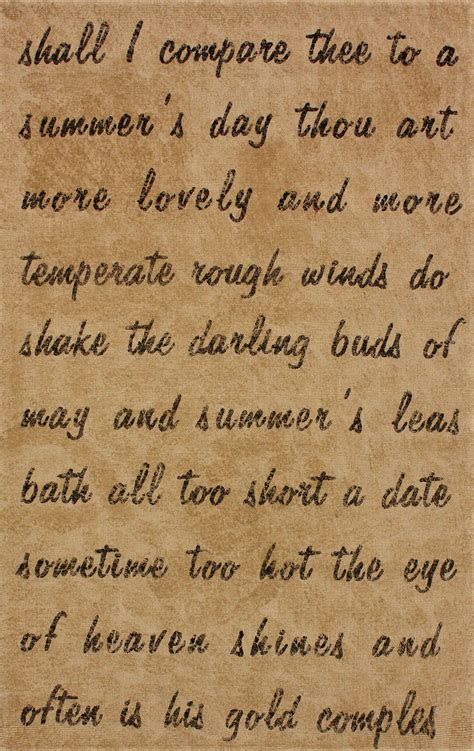 shall I compare thee to a
summer's day thou art
more lovely and more
temperate rough winds do
shake the darling buds of
may and summer's leas
bath all too short a date
sometime too hot the eye
of heaven shines and
often is his gold comples